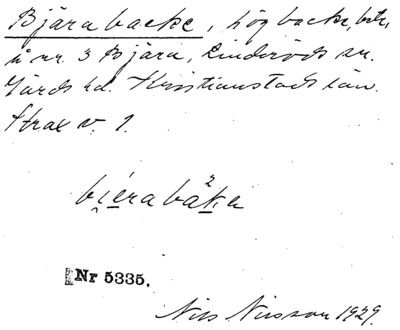 Bjära backe, hög backe, bete,
å nr. 3 Bjära, Linderöds sn.
Gärds hd. Kristianstads län.
Strax v. 1.
biéra bàka
Nr 5335.
Nils Nilsson 1929.